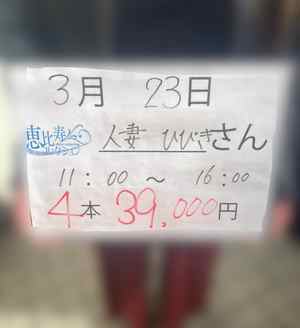 3月 23日
恵比寿
人妻 ひびきさん
11:00 ～ 16:00
4本 39,000円